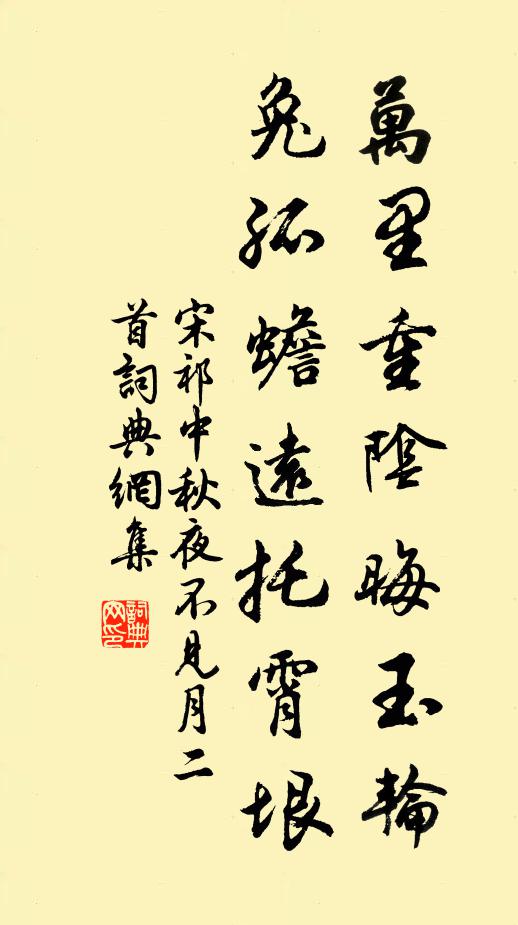 萬里重陰晦玉輪
兔孤蟾遠托霄垠
宋祁中秋夜不見月二
首詞典網集
詞典
网印